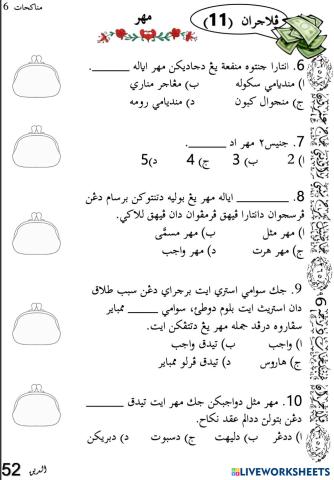 مناكحات 6
ڤلاجران (11) مهر
6. انتارا جنتوه منفعة يڠ دجاديكن مهر اياله ______.
ا) منديامي سكوله ب) مڠاجر مناري
ج) منجوال كبون د) منديامي رومه
7. جنيس٢ مهر اد ______.
ا) 2 ب) 3 ج) 4 د) 5
8. ______ اياله مهر يڠ بوليه دتنتوكن برسام دڠن
ڤرسجوان دانتارا ڤيهق ڤرمڤوان دان ڤيهق للاكي.
ا) مهر مثل ب) مهر مسمَّى
ج) مهر هرت د) مهر واجب
9. جك سوامي استري ايت برچراي دڠن سبب طلاق
دان استريث ايت بلوم دوطئ، سوامي _____ ممباير
سڤاروه درڤد جمله مهر يڠ دتتڤكن ايت.
ا) واجب ب) تيدق واجب
ج) هاروس د) تيدق ڤرلو ممباير
10. مهر مثل دواجبكن جك مهر ايت تيدق ______
دڠن بتولن ددالم عقد نكاح.
ا) ددڠر ب) دليهت ج) دسبوت د) دبريكن
52 الدين
LIVEWORKSHEETS